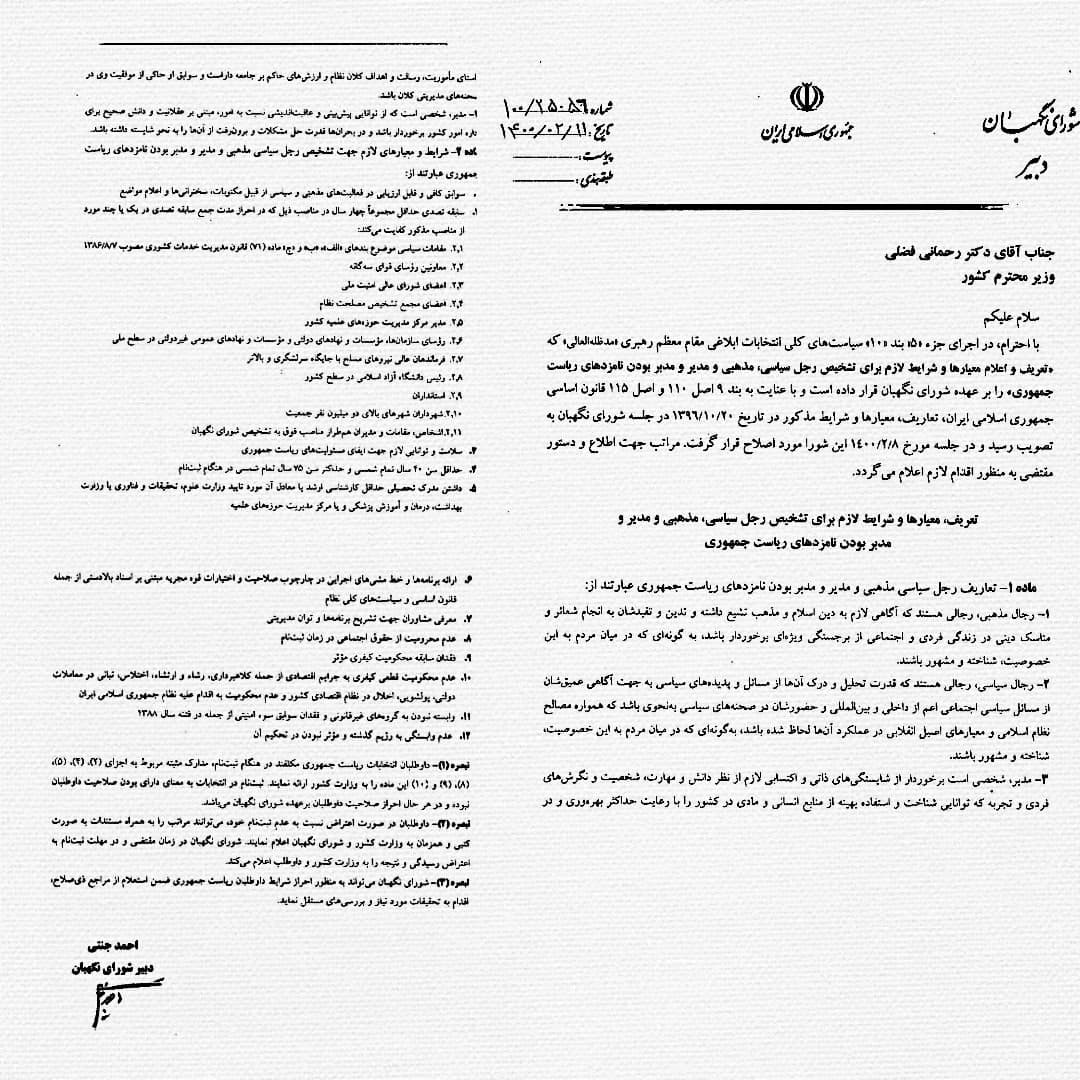 شورای نگهبان
دبیر
جمهوری اسلامی ایران
شماره: ۱۰۰/۲۵۰۸۶
تاریخ: ۱۴۰۰/۰۲/۱۱
پیوست:
طبقه‌بندی:
جناب آقای دکتر رحمانی فضلی
وزیر محترم کشور
سلام علیکم
با احترام، در اجرای جزء «۵» بند «۱۰» سیاست‌های کلی انتخابات ابلاغی مقام معظم رهبری (مدظله‌العالی» که
«تعریف و اعلام معیارها و شرایط لازم برای تشخیص رجل سیاسی، مذهبی و مدیر و مدبر بودن نامزدهای ریاست
جمهوری» را بر عهده شورای نگهبان قرار داده است و با عنایت به بند ۹ اصل ۱۱۰ و اصل ۱۱۵ قانون اساسی
جمهوری اسلامی ایران، تعاریف، معیارها و شرایط مذکور در تاریخ ۱۳۹۶/۱۰/۲۰ در جلسه شورای نگهبان به
تصویب رسید و در جلسه مورخ ۱۴۰۰/۲/۸ این شورا مورد اصلاح قرار گرفت. مراتب جهت اطلاع و دستور
مقتضی به منظور اقدام لازم اعلام می‌گردد.
تعریف، معیارها و شرایط لازم برای تشخیص رجل سیاسی، مذهبی و مدیر و
مدبر بودن نامزدهای ریاست جمهوری
ماده ۱- تعاریف رجل سیاسی مذهبی و مدیر و مدبر بودن نامزدهای ریاست جمهوری عبارتند از:
۱- رجال مذهبی، رجالی هستند که آگاهی لازم به دین اسلام و مذهب تشیع داشته و تدین و تقیدشان به انجام شعائر و
مناسک دینی در زندگی فردی و اجتماعی از برجستگی ویژه‌ای برخوردار باشد، به گونه‌ای که در میان مردم به این
خصوصیت، شناخته و مشهور باشند.
۲- رجال سیاسی، رجالی هستند که قدرت تحلیل و درک آن‌ها از مسائل و پدیده‌های سیاسی به جهت آگاهی عمیق‌شان
از مسائل سیاسی اجتماعی اعم از داخلی و بین‌المللی و حضورشان در صحنه‌های سیاسی به‌نحوی باشد که همواره مصالح
نظام اسلامی و معیارهای اصیل انقلابی در عملکرد آن‌ها لحاظ شده باشد، به‌گونه‌ای که در میان مردم به این خصوصیت،
شناخته و مشهور باشند.
۳- مدیر، شخصی است برخوردار از شایستگی‌های ذاتی و اکتسابی لازم از نظر دانش و مهارت، شخصیت و نگرش‌های
فردی و تجربه که توانایی شناخت و استفاده بهینه از منابع انسانی و مادی در کشور را با رعایت حداکثر بهره‌وری و در
استای مأموریت، رسالت و اهداف کلان نظام و ارزش‌های حاکم بر جامعه داراست و سوابق او حاکی از موفقیت وی در
صحنه‌های مدیریتی کلان باشد.
۱- مدبر، شخصی است که از توانایی پیش‌بینی و عاقبت‌اندیشی نسبت به امور، مبتنی بر عقلانیت و دانش صحیح برای
داره امور کشور برخوردار باشد و در بحران‌ها قدرت حل مشکلات و برون‌رفت از آن‌ها را به نحو شایسته داشته باشد.
ماده ۲- شرایط و معیارهای لازم جهت تشخیص رجل سیاسی مذهبی و مدیر و مدبر بودن نامزدهای ریاست
جمهوری عبارتند از:
. سوابق کافی و قابل ارزیابی در فعالیت‌های مذهبی و سیاسی از قبیل مکتوبات، سخنرانی‌ها و اعلام مواضع
۱. سابقه تصدی حداقل مجموعاً چهار سال در مناصب ذیل که در احراز مدت جمع سابقه تصدی در یک یا چند مورد
از مناصب مذکور کفایت می‌کند:
۲،۱. مقامات سیاسی موضوع بندهای «الف»، «ب» و «ج» ماده (۷۱) قانون مدیریت خدمات کشوری مصوب ۱۳۸۶/۸/۷
۲،۲. معاونین رؤسای قوای سه‌گانه
۲،۳. اعضای شورای عالی امنیت ملی
۲،۴. اعضای مجمع تشخیص مصلحت نظام
۲،۵. مدیر مرکز مدیریت حوزه‌های علمیه کشور
۲،۶. رؤسای سازمان‌ها، مؤسسات و نهادهای دولتی و مؤسسات و نهادهای عمومی غیردولتی در سطح ملی
۲،۷. فرماندهان عالی نیروهای مسلح با جایگاه سرلشگری و بالاتر
۲،۸. رئیس دانشگاه آزاد اسلامی در سطح کشور
۲،۹. استانداران
۲،۱۰. شهرداران شهرهای بالای دو میلیون نفر جمعیت
۲،۱۱. اشخاص، مقامات و مدیران هم‌طراز مناصب فوق به تشخیص شورای نگهبان
۳. سلامت و توانایی لازم جهت ایفای مسئولیت‌های ریاست جمهوری
۴. حداقل سن ۴۰ سال تمام شمسی و حداکثر سن ۷۵ سال تمام شمسی در هنگام ثبت‌نام
۵. داشتن مدرک تحصیلی حداقل کارشناسی ارشد یا معادل آن مورد تایید وزارت علوم، تحقیقات و فناوری یا وزارت
بهداشت، درمان و آموزش پزشکی و یا مرکز مدیریت حوزه‌های علمیه
۶. ارائه برنامه‌ها و خط مشی‌های اجرایی در چارچوب صلاحیت و اختیارات قوه مجریه مبتنی بر اسناد بالادستی از جمله
قانون اساسی و سیاست‌های کلی نظام
۷. معرفی مشاوران جهت تشریح برنامه‌ها و توان مدیریتی
۸. عدم محرومیت از حقوق اجتماعی در زمان ثبت‌نام
۹. فقدان سابقه محکومیت کیفری مؤثر
۱۰. عدم محکومیت قطعی کیفری به جرایم اقتصادی از جمله کلاهبرداری، رشاء و ارتشاء، اختلاس، تبانی در معاملات
دولتی، پولشویی، اخلال در نظام اقتصادی کشور و عدم محکومیت به اقدام علیه نظام جمهوری اسلامی ایران
۱۱. وابسته نبودن به گروه‌های غیرقانونی و فقدان سوابق سوء امنیتی از جمله در فتنه سال ۱۳۸۸
۱۲. عدم وابستگی به رژیم گذشته و مؤثر نبودن در تحکیم آن
تبصره (۱)- داوطلبان انتخابات ریاست جمهوری مکلفند در هنگام ثبت‌نام، مدارک مثبته مربوط به اجزای (۲)، (۴)، (۵)،
(۸)، (۹) و (۱۰) این ماده را به وزارت کشور ارائه نمایند. ثبت‌نام در انتخابات به معنای دارای بودن صلاحیت داوطلبان
نبوده و در هر حال احراز صلاحیت داوطلبان برعهده شورای نگهبان می‌باشد.
تبصره (۲)- داوطلبان در صورت اعتراض نسبت به عدم ثبت‌نام خود، می‌توانند مراتب را به همراه مستندات به صورت
کتبی و همزمان به وزارت کشور و شورای نگهبان اعلام نمایند. شورای نگهبان در زمان مقتضی و در مهلت ثبت‌نام به
اعتراض رسیدگی و نتیجه را به وزارت کشور و داوطلب اعلام می‌کند.
تبصره (۳)- شورای نگهبان می‌تواند به منظور احراز شرایط داوطلبان ریاست جمهوری ضمن استعلام از مراجع ذی‌صلاح،
اقدام به تحقیقات مورد نیاز و بررسی‌های مستقل نماید.
احمد جنتی
دبیر شورای نگهبان